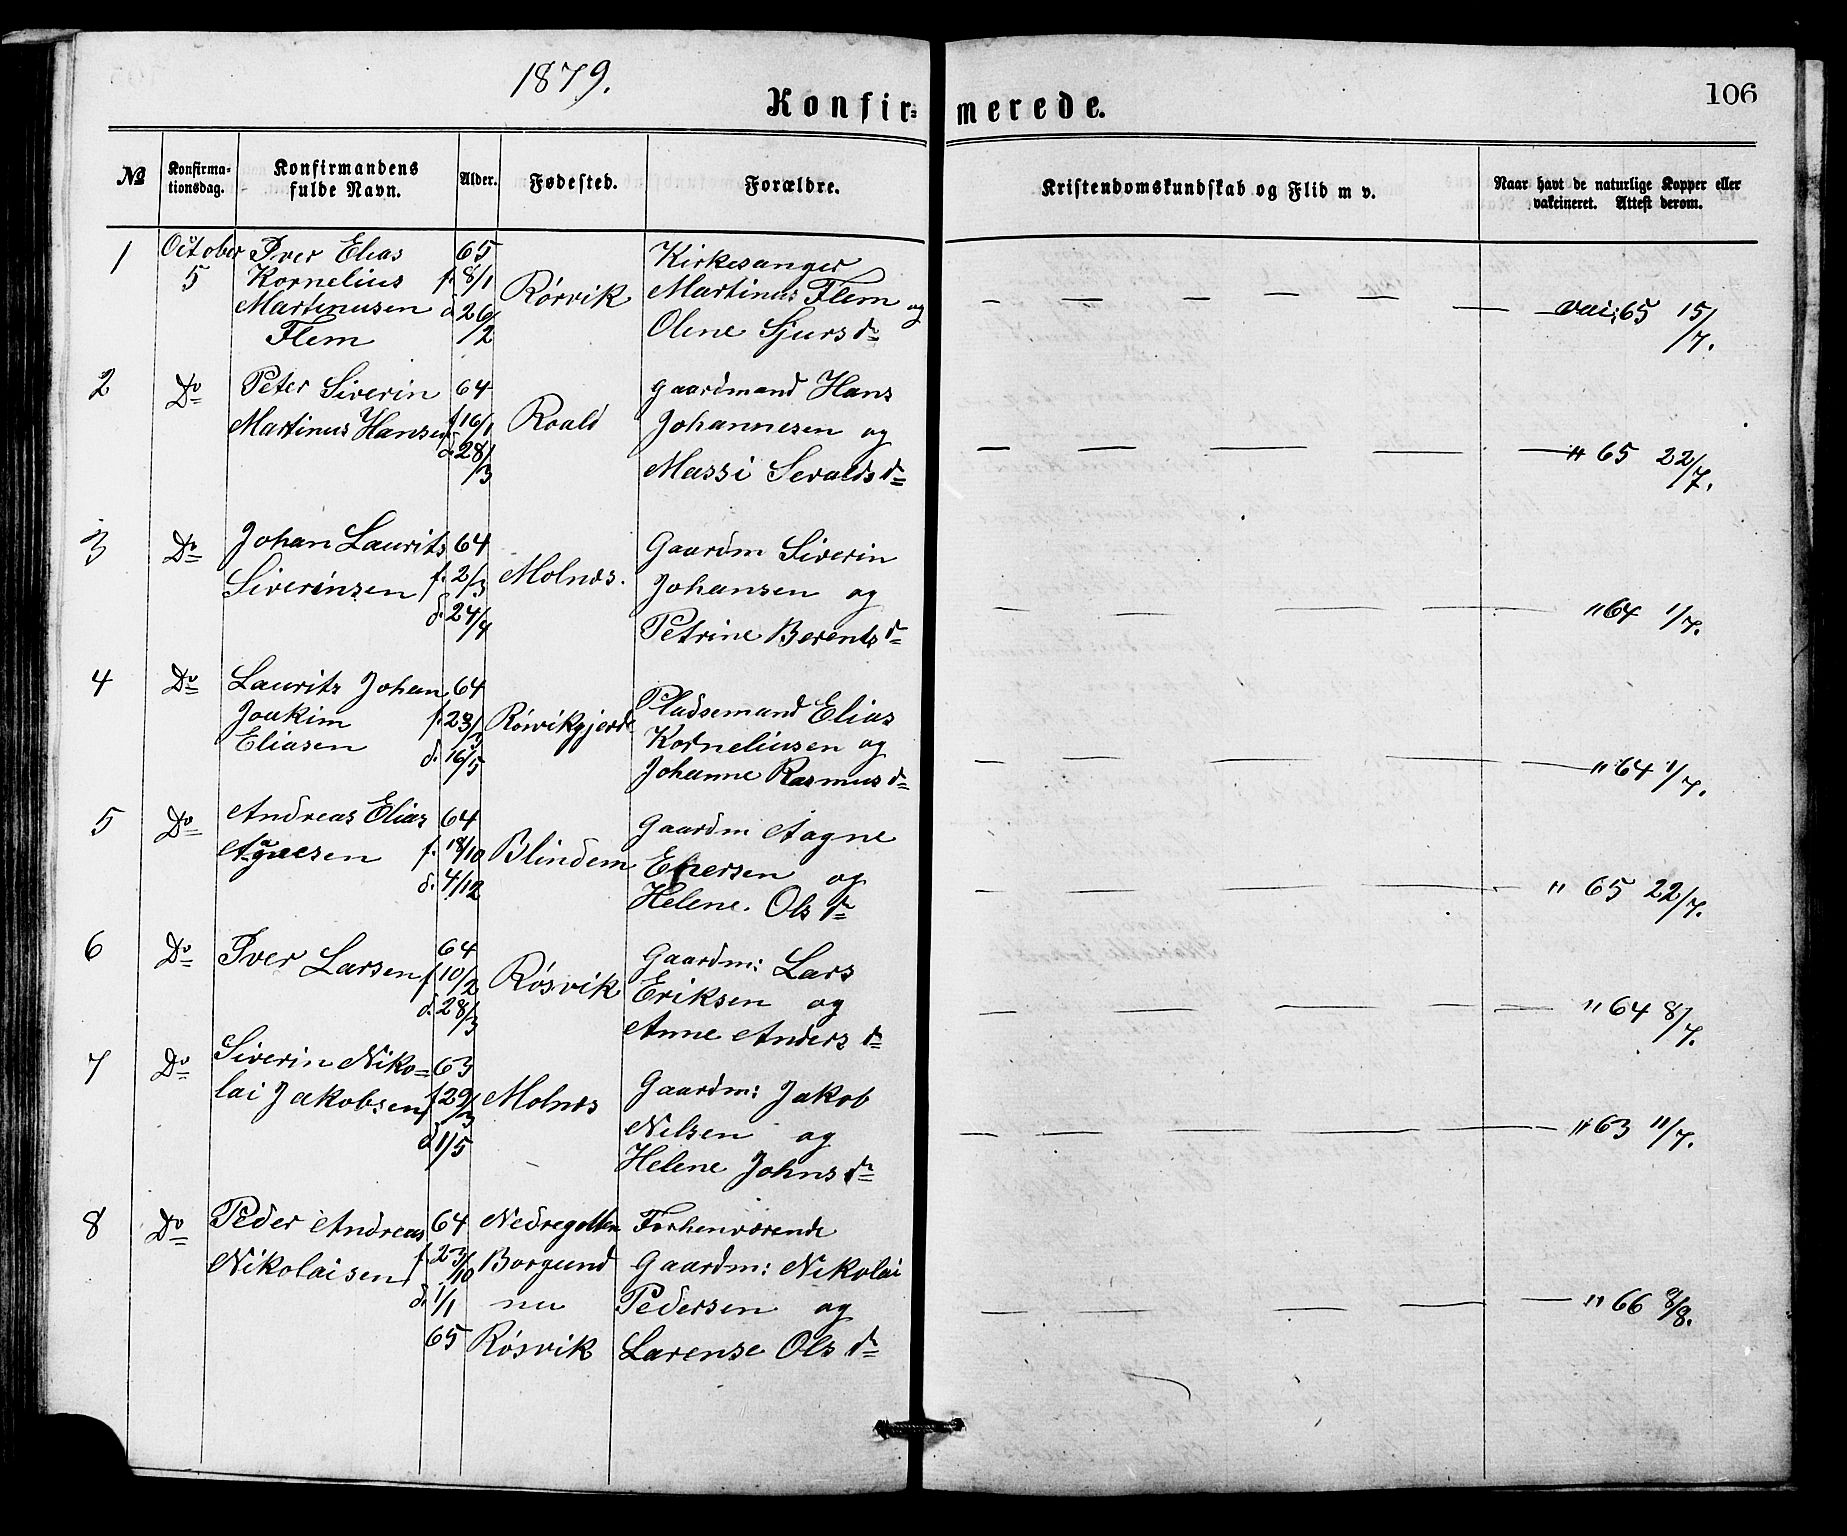 1879.
Konfirmerede.
106
№
Konfirma-
tionsdag.
Konfirmandens
fulde Navn.
Alder.
Fødested.
Forældre.
Kristendomskundskab og Flid m v.
Naar havt de naturlige Kopper eller
vakcineret. Attest derom.
1
October
5
Iver Elias
Kornelius
Martinusen
Flem
65
f. 8/1
d 26/2
Rörvik
Kirkesanger
Martinus Flem og
Olene Sjursdr
— — — — — —
vac: 65 15/7.
2
Do
Peter Siverin
Martinus Hansen
64
f 16/1
d. 28/3
Roald
gaardmand Hans
Johannesen og
Massi Sevaldsdr
— — — — — —
" 65 22/7.
3
Do
Johan Laurits
Siverinsen
64
f. 2/3
d. 24/4
Molnes.
Gaardm Siverin
Johansen og
Petrine Berentsdr
— — — — — —
" 64 1/7.
4
Do
Laurits Johan
Joakim
Eliasen
64
f. 23/3
d. 16/5
Rörvikgjerde
Pladsemand Elias
Korneliusen og
Johanne Rasmusdr
— — — — — —
" 64 1/7.
5
Do
Andreas Elias
Aagnesen
64
f. 18/10
d. 4/12
Blindem
Gaardm Aagne
Ellersen og
Helene. Olsdr
— — — — — —
" 65 22/7.
6
Do
Iver Larsen
64
f 10/2
d. 28/3
Rösvik
Gaardm: Lars
Eriksen og
Anne Andersdr
— — — — — —
" 64 8/7.
7
Do
Siverin Niko=
lai Jakobsen
63
f 29/3
d 1/5
Molnes
Gaardm: Jakob
Nilsen og
Helene Johnsdr
— — — — — —
" 63 11/7.
8
Do
Peder Andreas
Nikolaisen
64
f. 23/10
d. 1/1
65
Nedregotten
Borgund
nu
Rösvik
Forhenværende
Gaardm: Nikolai
Pedersen og
Larense Olsdr
— — — — — —
" 66 8/8.